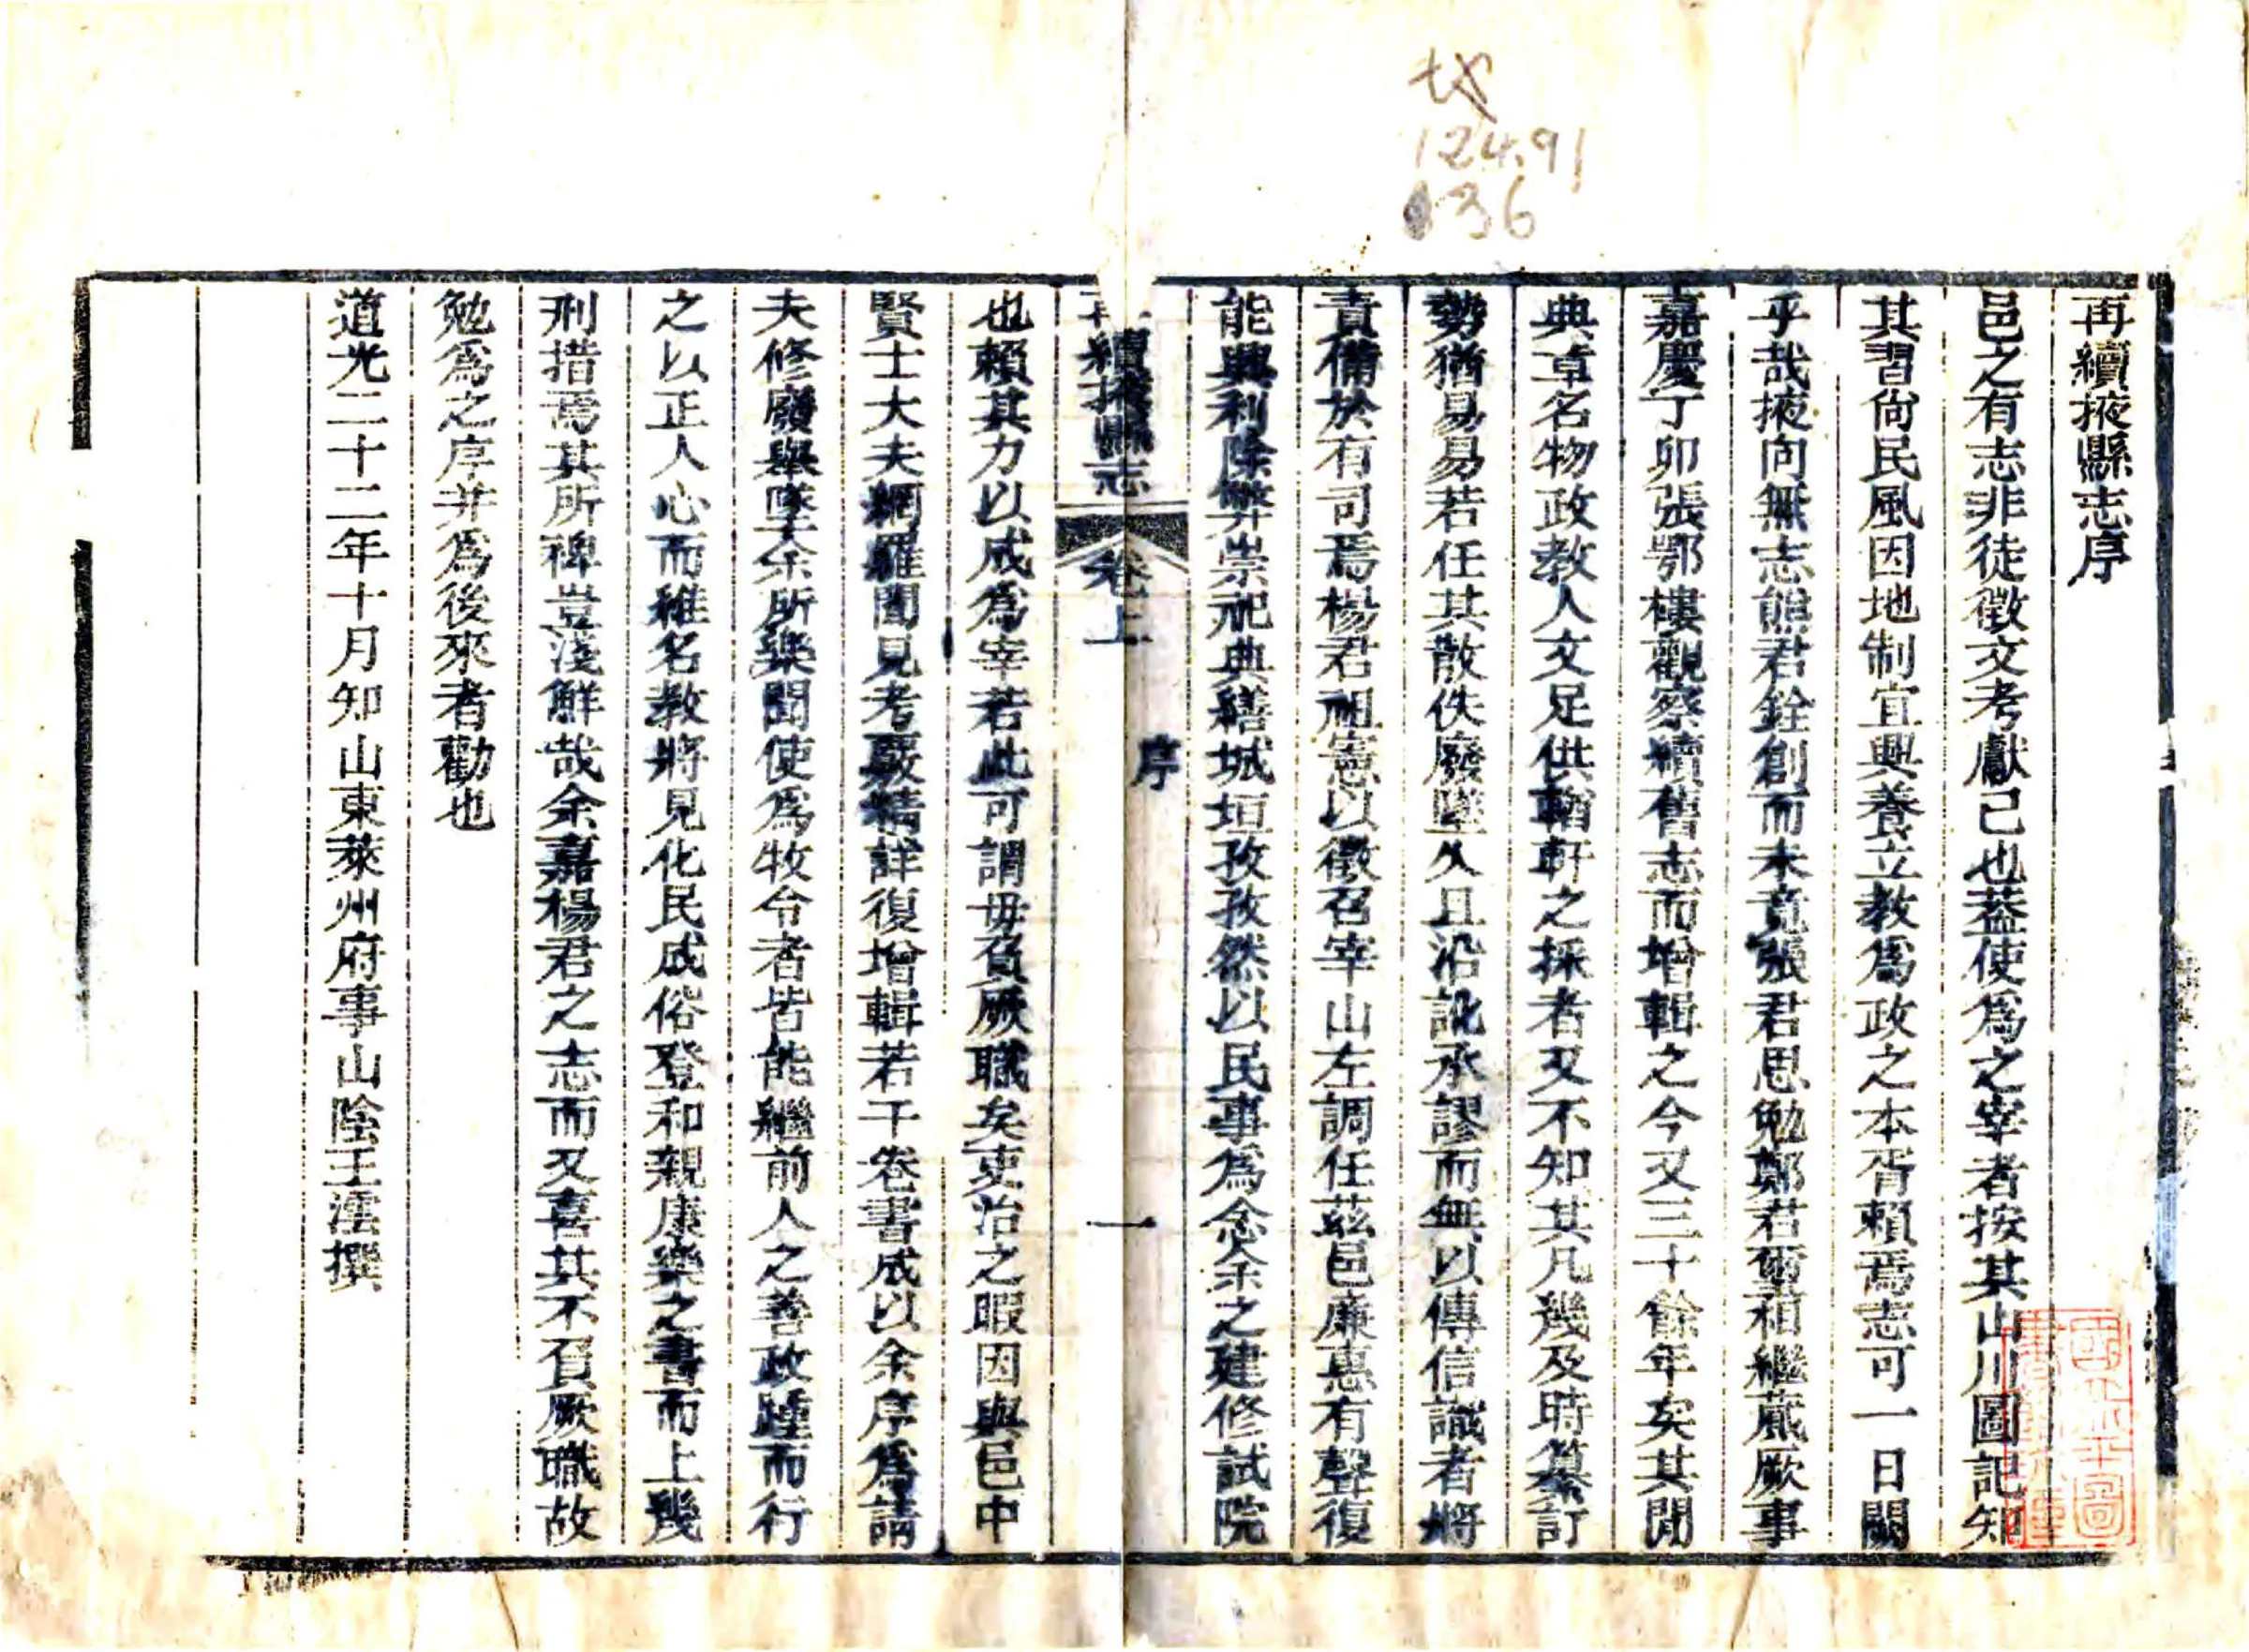 124.91
36
再續掖縣志序
邑之有志非徒徵文考獻己也葢使爲之宰者按其山川圖記知
其習尙民風因地制宜興養立教爲政之本胥賴焉志可一日闕
乎哉掖向無志熊君銓創而未竟張君思勉鄭君壐相繼蕆厥事
嘉慶丁卯張鄂樓觀察續舊志而增輯之今又三十餘年矣其閒
典章名物政教人文足供輶軒之採者又不知其凡幾及時纂訂
勢猶易易若任其散佚廢墜久且沿訛承謬而無以傳信識者將
責備於有司焉楊君祖憲以徵召宰山左調任茲邑廉惠有聲復
能興利除弊崇祀典繕城垣孜孜然以民事爲念余之建修試院
再續掖縣志
卷上
序
一
也賴其力以成爲宰若此可謂毋負厥職矣吏治之暇因與邑中
賢士大夫網羅聞見考覈精詳復增輯若干卷書成以余序爲請
夫修廢舉墜余所樂聞使爲牧令者皆能繼前人之善政踵而行
之以正人心而維名教將見化民成俗登和親康樂之書而上幾
刑措焉其所裨豈淺鮮哉余嘉楊君之志而又喜其不負厥職故
勉爲之序并爲後來者勸也
道光二十二年十月知山東萊州府事山陰王澐撰